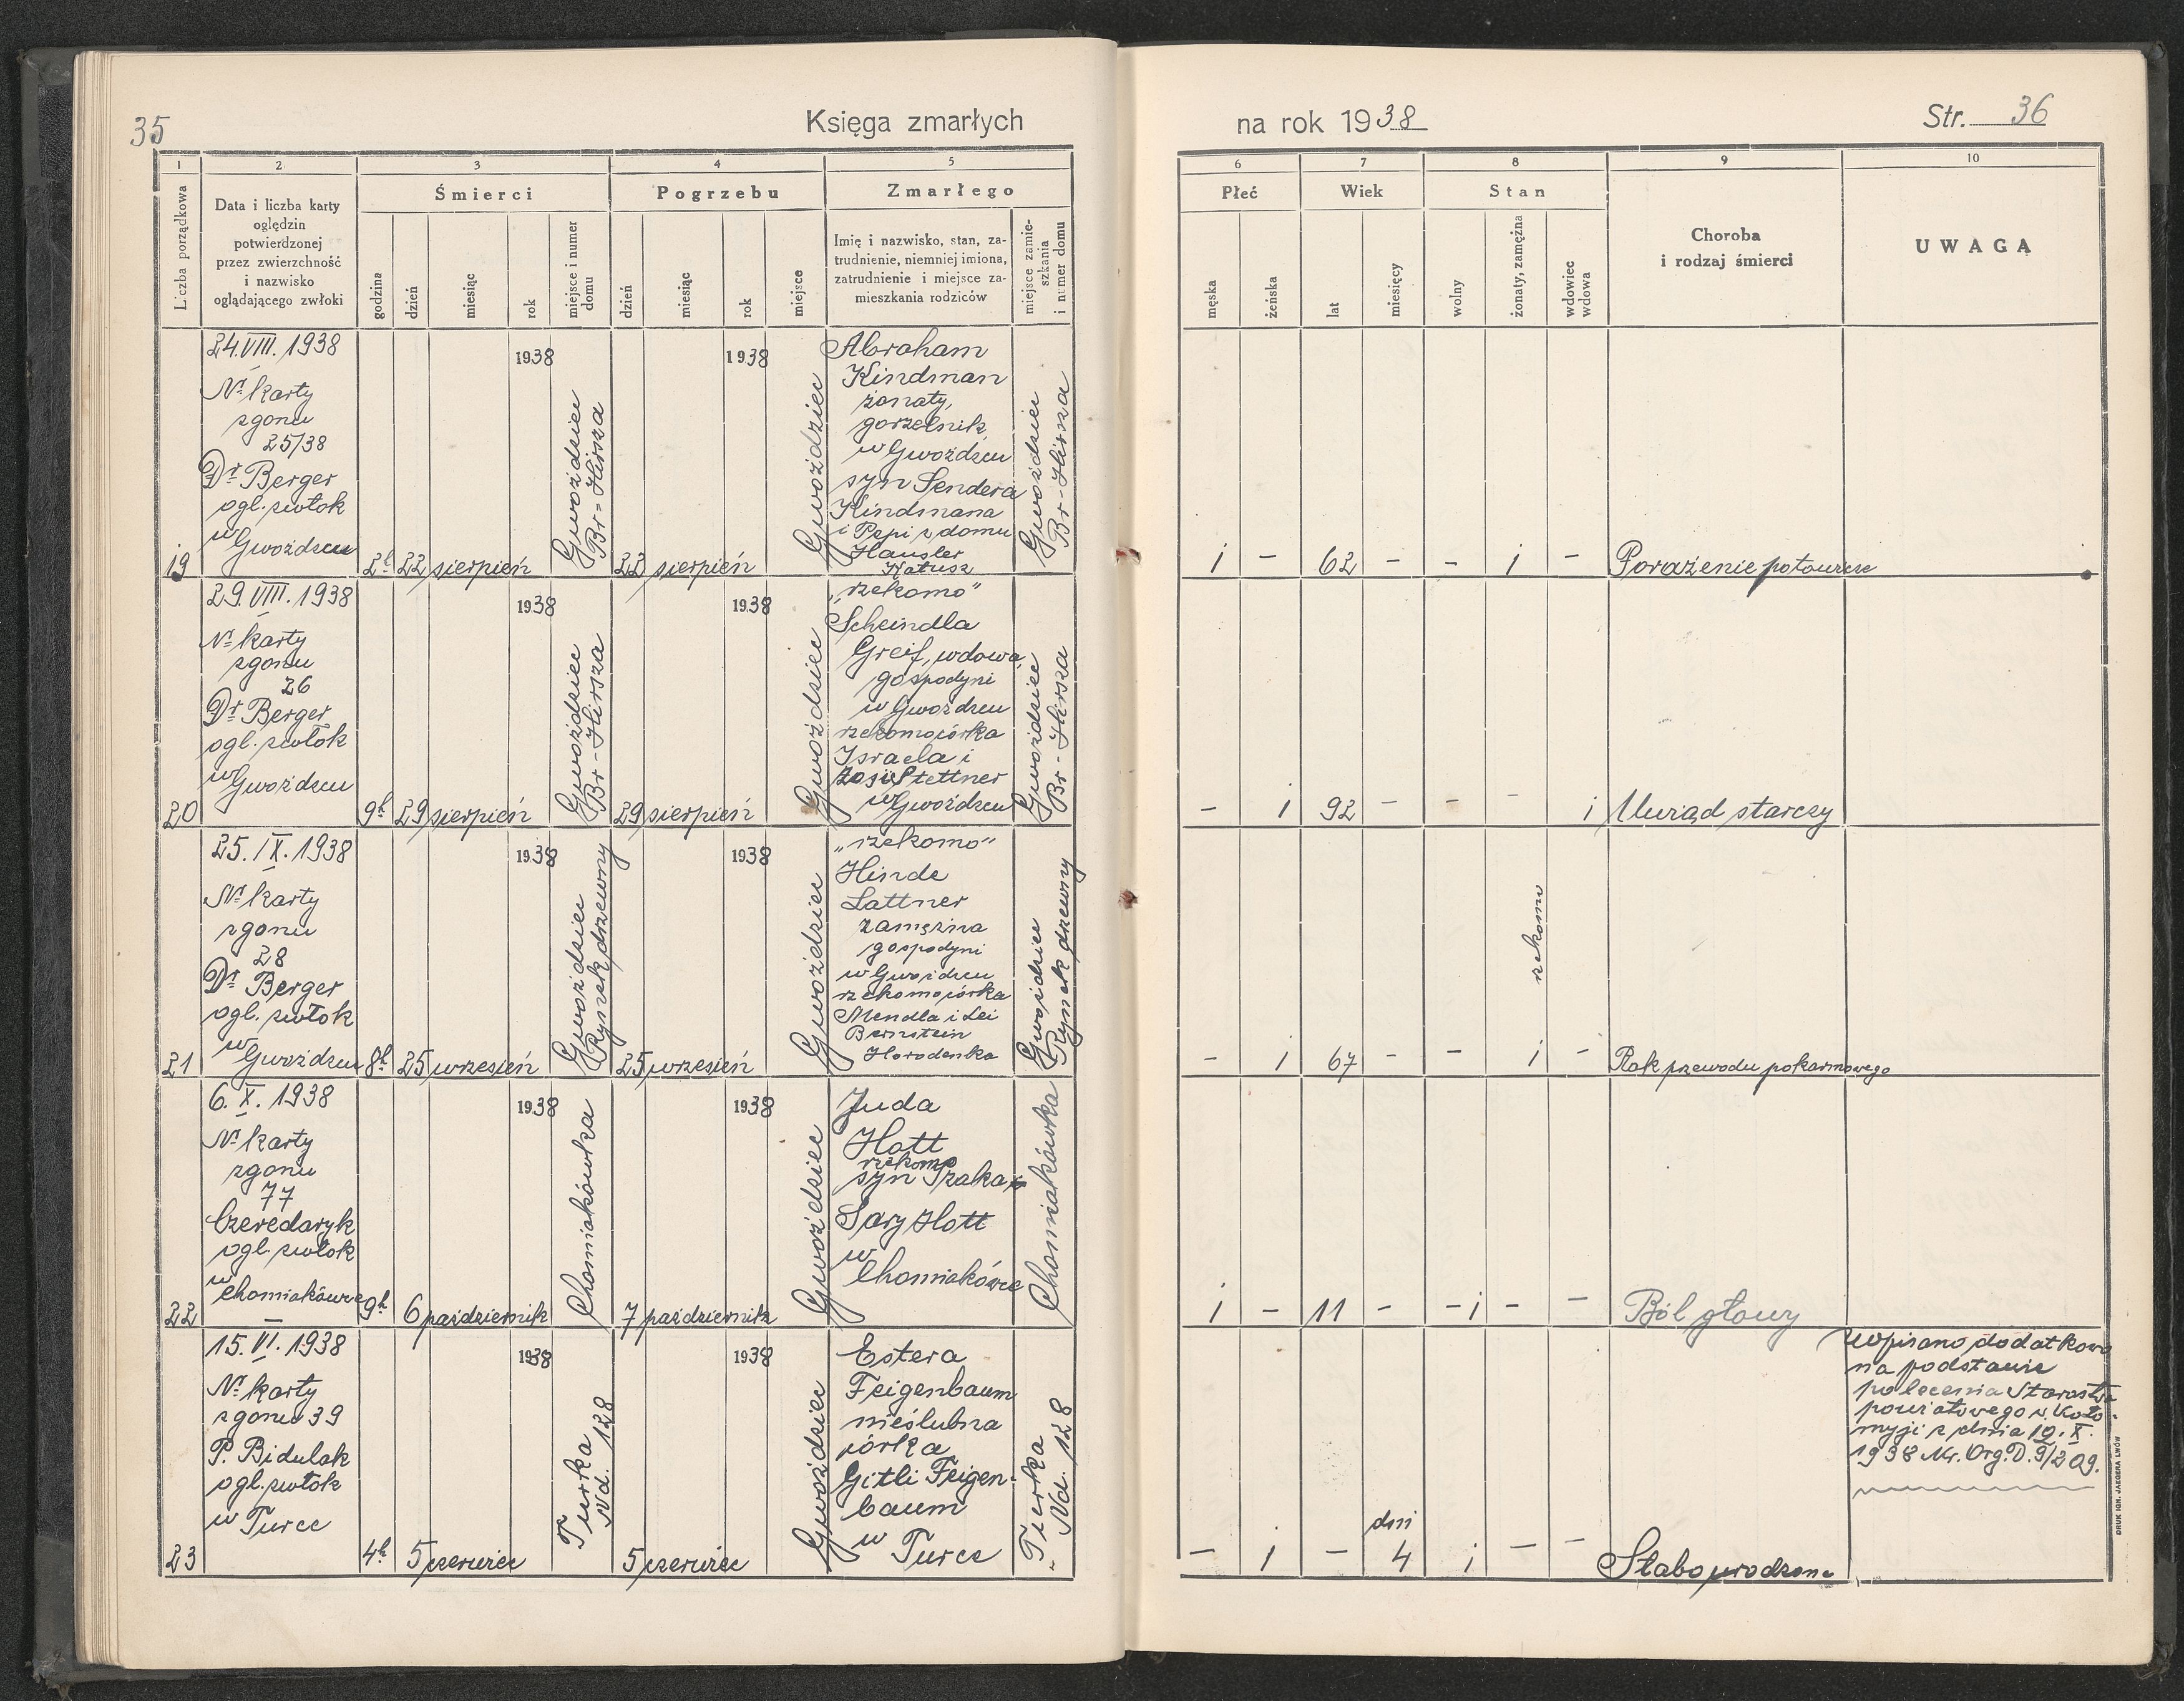 35
Księga zmarłych
na rok 1938
Str. 36
1
2
3
4
5
6
7
8
9
10
Liczba porządkowa
Data i liczba karty
oględzin
potwierdzonej
przez zwierzchność
i nazwisko
oglądającego zwłoki
Śmierci
godzina
dzień
miesiąc
rok
miejsce i numer
domu
Pogrzebu
dzień
miesiąc
rok
miejsce
Zmarłego
Imię i nazwisko, stan, za-
trudnienie, niemniej imiona,
zatrudnienie i miejsce za-
mieszkania rodziców
miejsce zamie-
szkania
i numer domu
Płeć
męska
żeńska
Wiek
lat
miesięcy
Stan
wolny
żonaty, zamężna
wdowiec
wdowa
Choroba
i rodzaj śmierci
UWAGA
19
24.VIII.1938
Nr karty
zgonu
25/38
Dr Berger
ogl. zwłok
w
Gwoźdzcu
2h
22 sierpień
1938
Gwoździec
Br-Hirsza
22 sierpień
1938
Gwoździec
Abraham
Kindman
żonaty,
gorzelnik
w Gwoźdzcu
syn Sendera
Kindmana
i Pepi z domu
Hausler
Gwoździec
Br-Hirsza
1
–
62
–
–
1
–
Porażenie
20
29.VIII.1938
Nr karty
zgonu
26
Dr Berger
ogl. zwłok
w
Gwoźdzcu
9h
29 sierpień
1938
Gwoździec
Br-Hirsza
29 sierpień
1938
Gwoździec
„rzekomo"
Scheindla
Greif, wdowa,
gospodyni
w Gwoźdzcu
rzekomo córka
Israela i
Zosi Stettner
w Gwoźdzcu
Gwoździec
Br-Hirsza
–
1
92
–
–
–
1
Uwiąd starczy
21
25.IX.1938
Nr karty
zgonu
28
Dr Berger
ogl. zwłok
w
Gwoźdzcu
8h
25 wrzesień
1938
Gwoździec
Rynek drzewny
25 wrzesień
1938
Gwoździec
„rzekomo"
Hinde
Lattner
zamężna
gospodyni
w Gwoźdzcu
rzekomo córka
Mendla i Lei
Bernstein
Horodenka
Gwoździec
Rynek drzewny
–
1
67
–
–
rzekomo
1
–
Rak przewodu pokarmowego
22
6.X.1938
Nr karty
zgonu
77
Czeredaryk
ogl. zwłok
w
Chomiakówce
9h
6 październik
1938
Chomiakówka
7 październik
1938
Gwoździec
Juda
Hott
rzekomo
syn Izaka
Sary Hott
w
Chomiakówce
Chomiakówka
1
–
11
–
–1
–
–
Ból głowy
23
15.VI.1938
Nr karty
zgonu 39
P. Bidulak
ogl. zwłok
w Turce
4h
5 czerwiec
1938
Turka
Nd. 128
5 czerwiec
1938
Gwoździec
Estera
Feigenbaum
nieślubna
córka
Gitli Feigen-
baum
w
Turce
Turka
Nd. 128
–
1
–
dni
4
1
–
–
Słabo urodzone
Wpisano dodatkowo
na podstawie
polecenia Starostwa
powiatowego w Koło-
myji z dnia 10.X.
1938 Nr. Org.D.9/209.
DRUK IGN. JAEGERA LWÓW